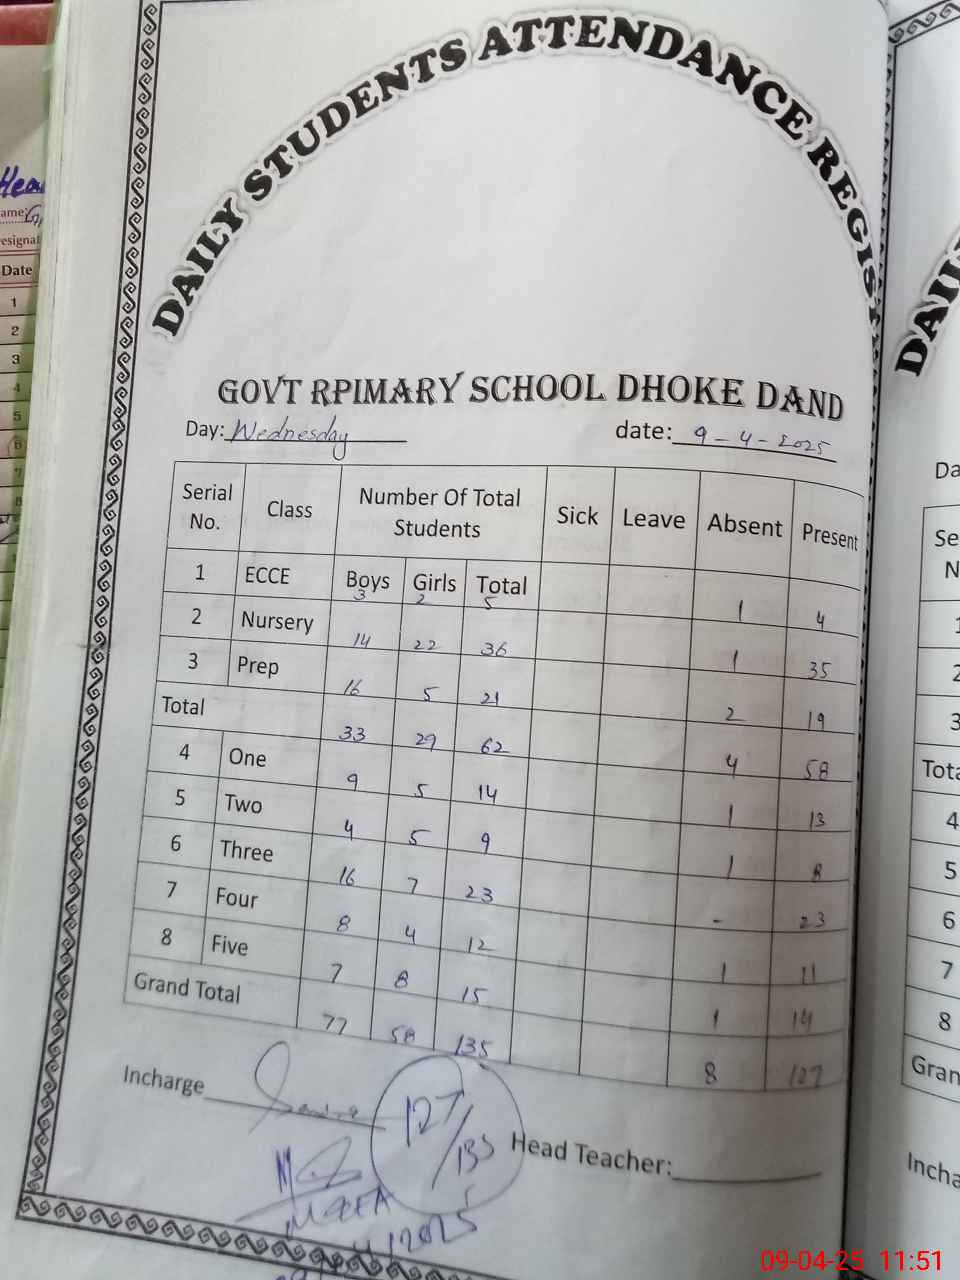 DAILY STUDENTS ATTENDANCE REGIS
GOVT RPIMARY SCHOOL DHOKE DAND
Day: Wednesday date: 9-4-2025
Serial No. Class Number Of Total Students Sick Leave Absent Present
1 ECCE Boys Girls Total
3 2 5 1 4
2 Nursery 14 22 36 1 35
3 Prep 16 5 21 2 19
Total 33 29 62 4 58
4 One 9 5 14 1 13
5 Two 4 5 9 1 8
6 Three 16 7 23 - 23
7 Four 8 4 12 1 11
8 Five 7 8 15 1 14
Grand Total 77 58 135 8 127
Incharge
127/135
Head Teacher:
Date
1
2
3
4
5
6
7
8
DAIL
Da
Se
N
1
2
3
Tota
4
5
6
7
8
Gran
Incha
09-04-25 11:51